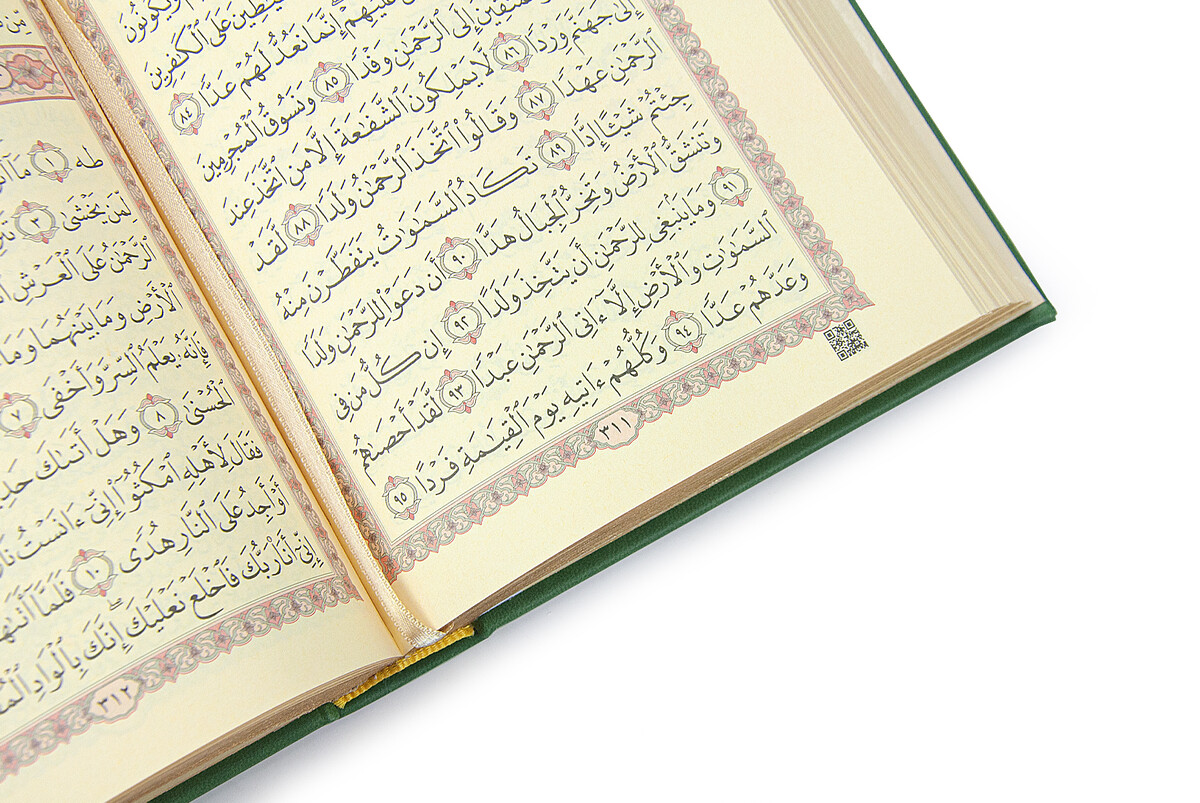 وَيَكُونُونَ
ٱلشَّيَٰطِينَ عَلَى ٱلْكَٰفِرِينَ
عَلَيْهِمْ إِنَّمَا نَعُدُّ لَهُمْ عَدًّا ٨٤
إِلَى ٱلرَّحْمَٰنِ وَفْدًا ٨٥ وَنَسُوقُ ٱلْمُجْرِمِينَ
إِلَىٰ جَهَنَّمَ وِرْدًا ٨٦ لَّا يَمْلِكُونَ ٱلشَّفَٰعَةَ إِلَّا مَنِ ٱتَّخَذَ عِندَ
ٱلرَّحْمَٰنِ عَهْدًا ٨٧ وَقَالُوا۟ ٱتَّخَذَ ٱلرَّحْمَٰنُ وَلَدًا ٨٨ لَّقَدْ
جِئْتُمْ شَيْـًٔا إِدًّا ٨٩ تَكَادُ ٱلسَّمَٰوَٰتُ يَتَفَطَّرْنَ مِنْهُ
وَتَنشَقُّ ٱلْأَرْضُ وَتَخِرُّ ٱلْجِبَالُ هَدًّا ٩٠ أَن دَعَوْا۟ لِلرَّحْمَٰنِ وَلَدًا
٩١ وَمَا يَنۢبَغِى لِلرَّحْمَٰنِ أَن يَتَّخِذَ وَلَدًا ٩٢ إِن كُلُّ مَن فِى
ٱلسَّمَٰوَٰتِ وَٱلْأَرْضِ إِلَّآ ءَاتِى ٱلرَّحْمَٰنِ عَبْدًا ٩٣ لَّقَدْ أَحْصَىٰهُمْ
وَعَدَّهُمْ عَدًّا ٩٤ وَكُلُّهُمْ ءَاتِيهِ يَوْمَ ٱلْقِيَٰمَةِ فَرْدًا ٩٥
٣١١
طه ١ مَآ
لِّمَن يَخْشَىٰ ٣
ٱلرَّحْمَٰنُ عَلَى ٱلْعَرْشِ
ٱلْأَرْضِ وَمَا بَيْنَهُمَا وَمَا
فَإِنَّهُۥ يَعْلَمُ ٱلسِّرَّ وَأَخْفَى ٧
ٱلْحُسْنَىٰ ٨ وَهَلْ أَتَىٰكَ
فَقَالَ لِأَهْلِهِ ٱمْكُثُوٓا۟ إِنِّىٓ ءَانَسْتُ
أَوْ أَجِدُ عَلَى ٱلنَّارِ هُدًى ١٠ فَلَمَّآ أَتَىٰهَا
إِنِّىٓ أَنَا۠ رَبُّكَ فَٱخْلَعْ نَعْلَيْكَ إِنَّكَ بِٱلْوَادِ
٣١٢